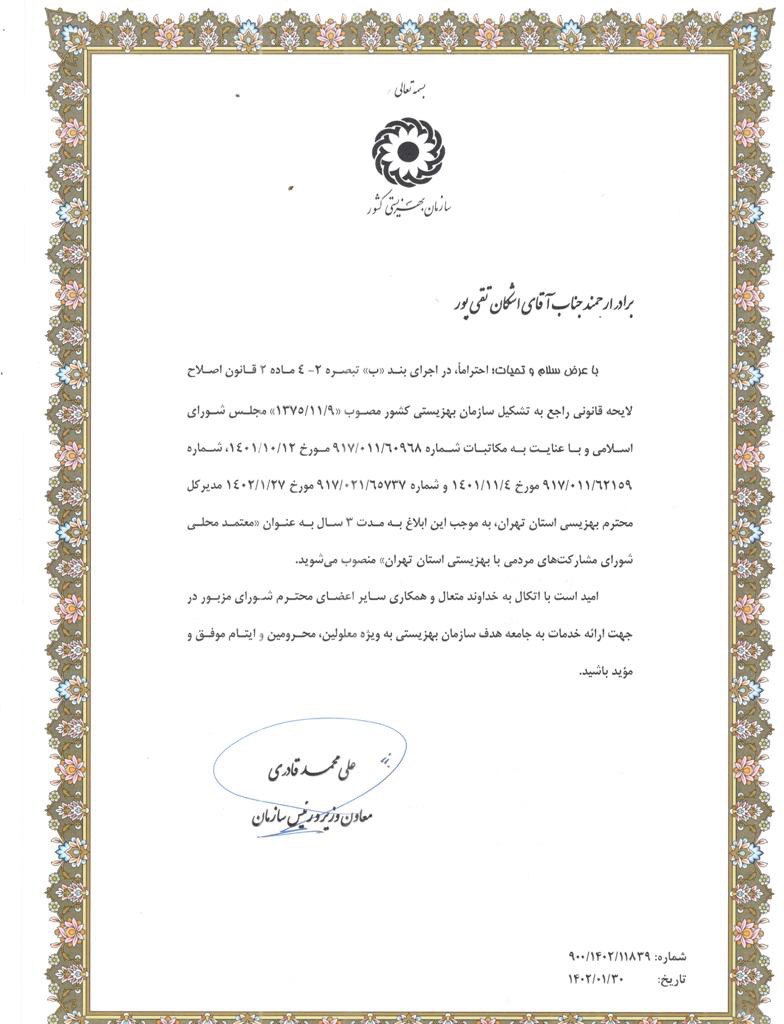 بسمه تعالی
سازمان بهزیستی کشور
برادر ارجمند جناب آقای اشکان تقی پور
با عرض سلام و تحیات؛ احتراماً، در اجرای بند «ب» تبصره ۲- ٤ ماده ۲ قانون اصلاح
لایحه قانونی راجع به تشکیل سازمان بهزیستی کشور مصوب «۱۳۷۵/۱۱/۹» مجلس شورای
اسلامی و با عنایت به مکاتبات شماره ۹۱۷/۰۱۱/۶۰۹۶۸ مورخ ۱٤۰۱/۱۰/۱۲، شماره
۹۱۷/۰۱۱/۶۲۱۵۹ مورخ ۱٤۰۱/۱۱/٤ و شماره ۹۱۷/۰۲۱/۶۵۷۳۷ مورخ ۱٤۰۲/۱/۲۷ مدیرکل
محترم بهزیسی استان تهران، به موجب این ابلاغ به مدت ۳ سال به عنوان «معتمد محلی
شورای مشارکت‌های مردمی با بهزیستی استان تهران» منصوب می‌شوید.
امید است با اتکال به خداوند متعال و همکاری سایر اعضای محترم شورای مزبور در
جهت ارائه خدمات به جامعه هدف سازمان بهزیستی به ویژه معلولین، محرومین و ایتام موفق و
مؤید باشید.
علی محمد قادری
معاون وزیر و رئیس سازمان
شماره: ۹۰۰/۱۴۰۲/۱۱۸۳۹
تاریخ: ۱۴۰۲/۰۱/۳۰